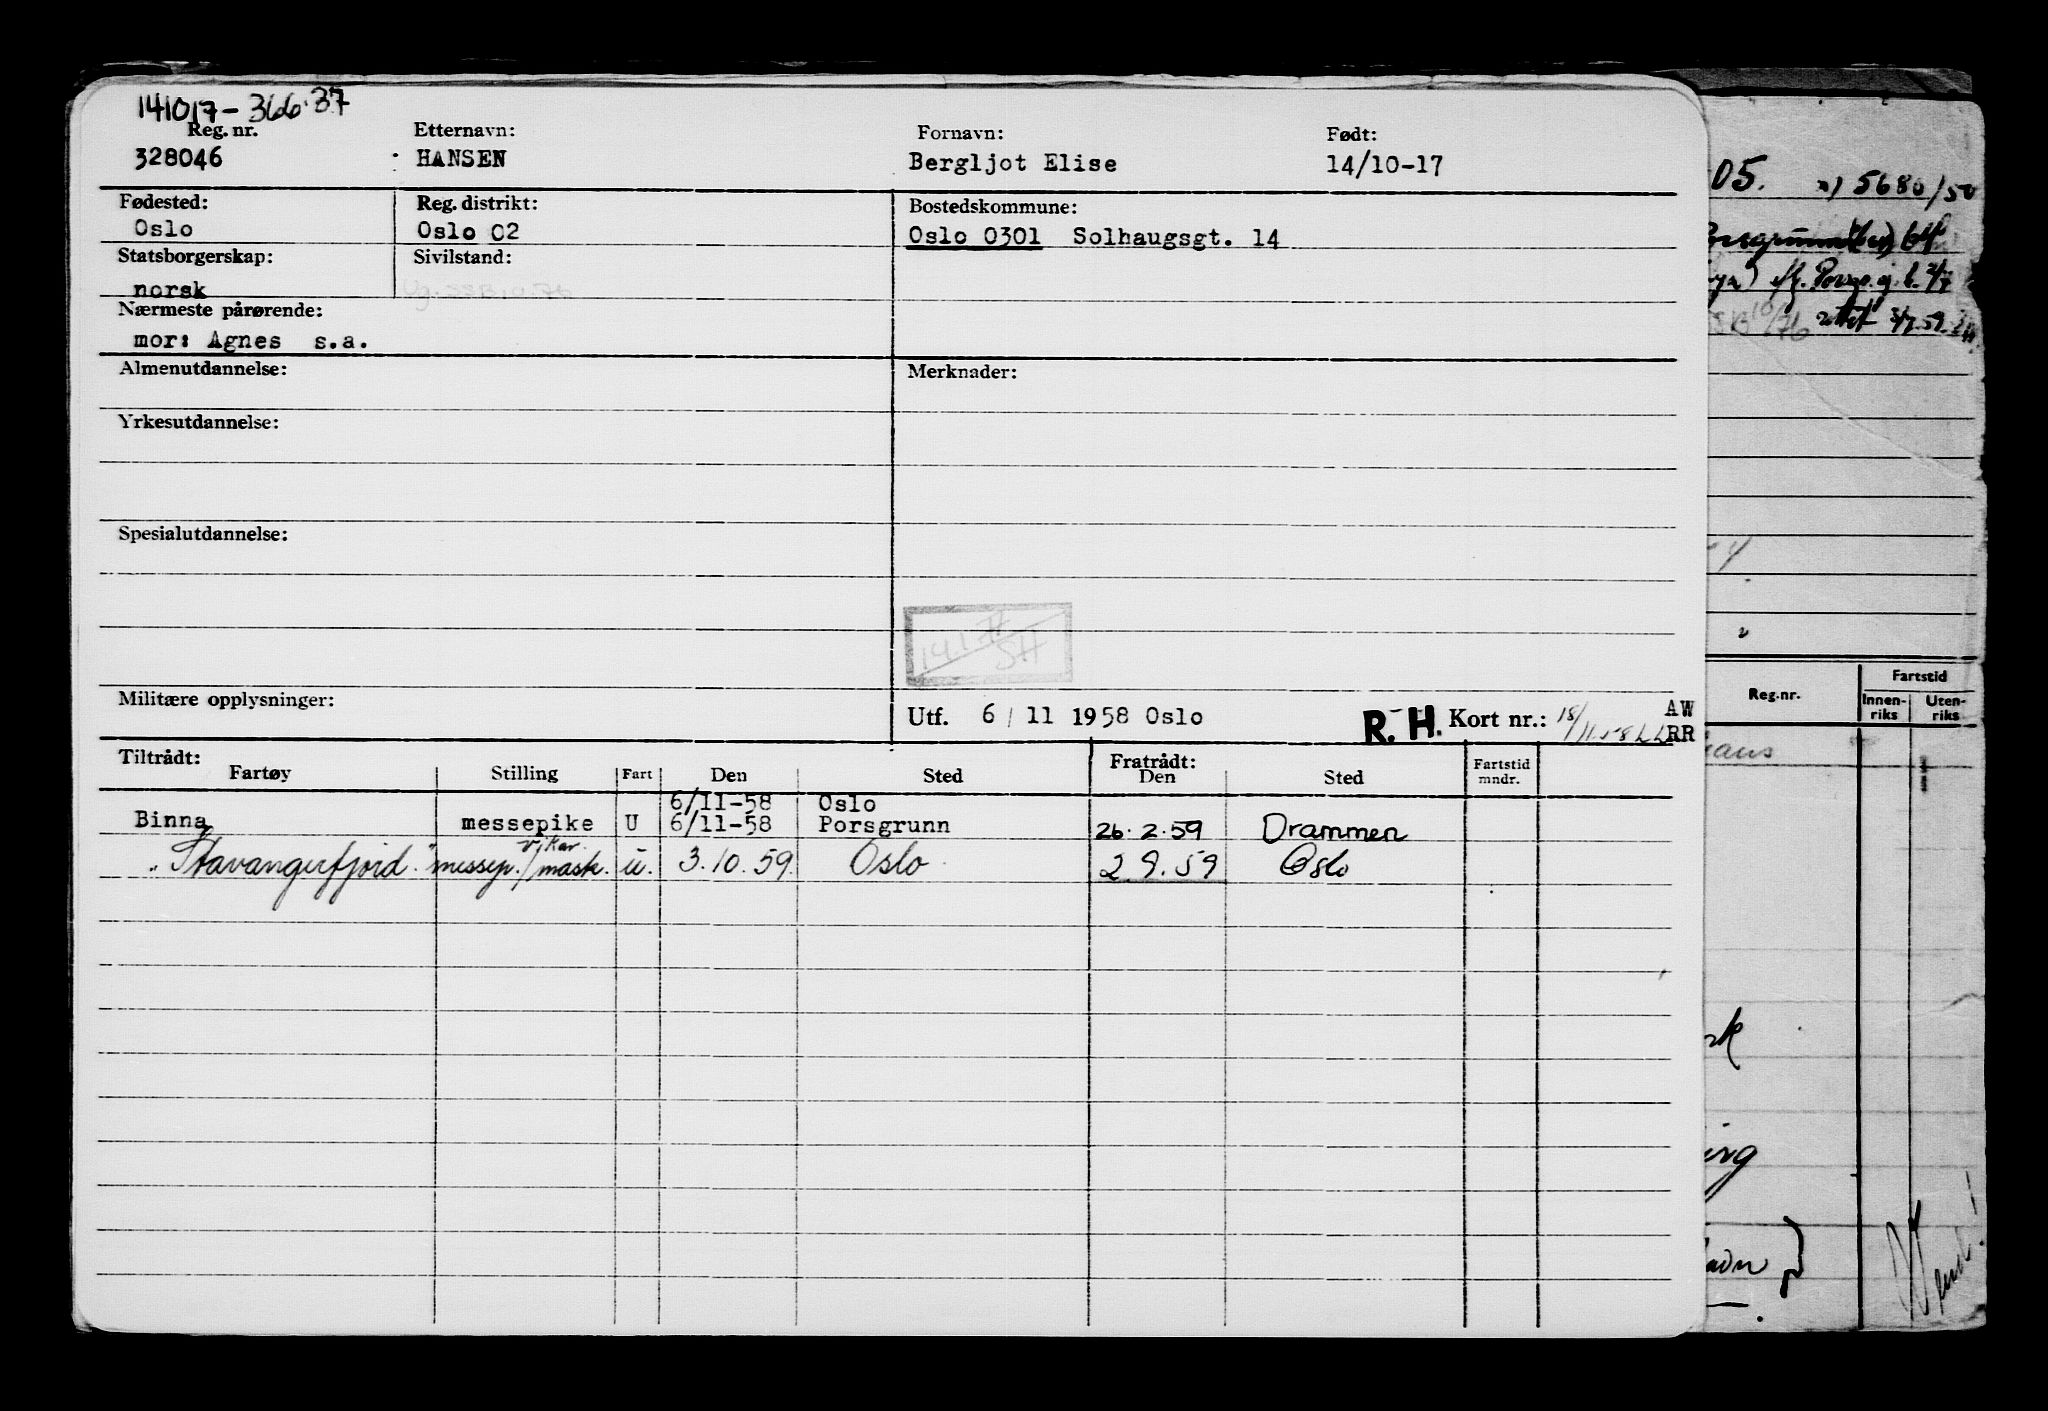 141017-366.37
Reg. nr. Etternavn: Fornavn: Født:
328046 HANSEN Bergljot Elise 14/10-17
Fødested: Reg. distrikt: Bostedskommune:
Oslo Oslo 02 Oslo 0301 Solhaugsgt. 14
Statsborgerskap: Sivilstand:
norsk
Nærmeste pårørende:
mor: Agnes s.a.
Almenutdannelse: Merknader:
Yrkesutdannelse:
Spesialutdannelse:
Militære opplysninger:
Utf. 6/11 1958 Oslo R.H. Kort nr.: AW
RR
Tiltrådt: Fratrådt:
Fartøy Stilling Fart Den Sted Den Sted Fartstid mndr.
6/11-58 Oslo
Binna messepike U 6/11-58 Porsgrunn 26.2.59 Drammen
vikar
"Stavangerfjord" messep./mask. u. 3.10.59 Oslo 2 9.59 Oslo
05. x) 5680/50
Reg.nr. Fartstid
Innen-riks Uten-riks